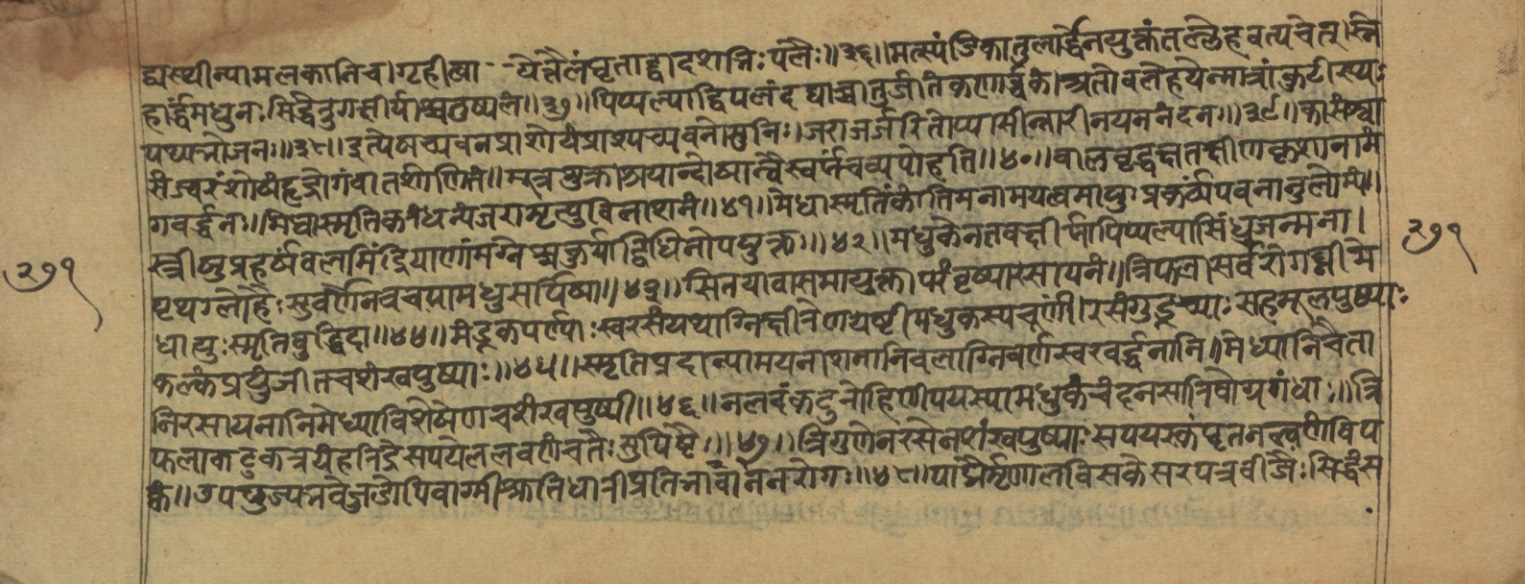 द्यस्थीन्यामलकानिच।गृहीत्वा - - येत्तैलंघृताद्वादशभिःपलैः॥३६॥मत्स्यंडिकातुलार्द्धेनयुक्तंतल्लेहवत्पचेत्।स्ने
हार्द्धंमधुनःसिद्धेतुगक्षीर्याश्चतुष्पलं॥३७॥पिप्पल्याद्विपलंदद्याच्चातुर्जातंकणार्द्धकं।अतोवलेहयेन्मात्रांकुटीस्थः
पथ्यभोजनः॥३८॥इत्येषच्यवनप्राशोयंप्राश्यच्यवनोमुनिः।जराजर्जरितोप्यासीन्नारीनयननंदनः॥३९॥कासंश्वा
संज्वरंशोषंहृद्रोगंवातशोणितं॥मूत्रशुक्राश्रयान्दोषान्वैस्वर्यंचव्यपोहति॥४०॥बालवृद्धक्षतक्षीणकृशानामं
गवर्द्धनः॥मेधास्मृतिकरंधन्यंजरामृत्युविनाशनं॥४१॥मेधास्मृतिंकांतिमनामयत्वमायुःप्रकर्षंपवनानुलोम्यं॥
स्त्रीषुप्रहर्षंबलमिंद्रियाणांमग्नेश्चकुर्याद्विधिनोपयुक्तः॥४२॥मधुकेनतवक्षीर्यापिप्पल्यासिंधुजन्मना।
पृथग्लोहैःसुवर्णेनवचयामधुसर्पिषा॥४३॥सितयावासमायुक्तापरंवृष्यारसायनं॥त्रिफलासर्वरोगघ्नीमे
धायुःस्मृतिबुद्धिदा॥४४॥मंडूकपर्ण्याःस्वरसंयथाग्निक्षीरेणयष्टीमधुकस्यचूर्णं।रसंगुडूच्याःसहमूलपुष्प्याः
कल्कंप्रयुंजीतचशंखपुष्प्याः॥४५॥स्मृतिप्रदान्यामयनाशनानिबलाग्निवर्णस्वरवर्द्धनानि॥मेध्यानिचैता
निरसायनानिमेध्याविशेषेणचशंखपुष्पी॥४६॥नलदंकटुरोहिणीपयस्यामधुकंचंदनसारिवोग्रगंधाः॥त्रि
फलाकटुकत्रयंहरिद्रेसपटोललवणंचतैःसुपिष्टैः॥४७॥त्रिगुणेनरसेनशंखपुष्प्याःसपयस्कंघृतनल्वणंविप
क्वं॥उपयुज्यभवेज्जडोपिवाग्मीश्रुतिधारीप्रतिभावानरोगः॥४८॥पाद्मैर्मृणालबिसकेसरपत्रबीजैःसिद्धंस
२७१
२७१